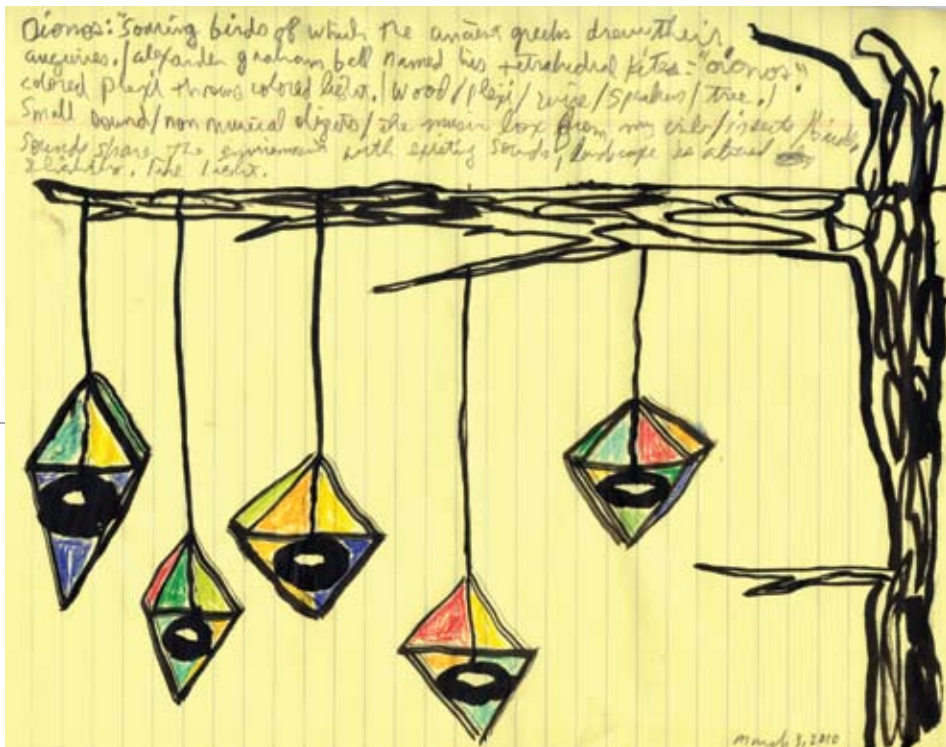 Oionos: "Soaring birds of which the ancient greeks drew their
auguries. / alexander graham bell named his tetrahedral kites: "oionos"
colored plexi throws colored light. / Wood / plexi / wire / speakers / tree. /
Small sound / non musical objects / the music box from my crib / insects / birds,
Sounds share the environment with existing sounds, landscape is altered
slightly. like light.
March 3, 2010